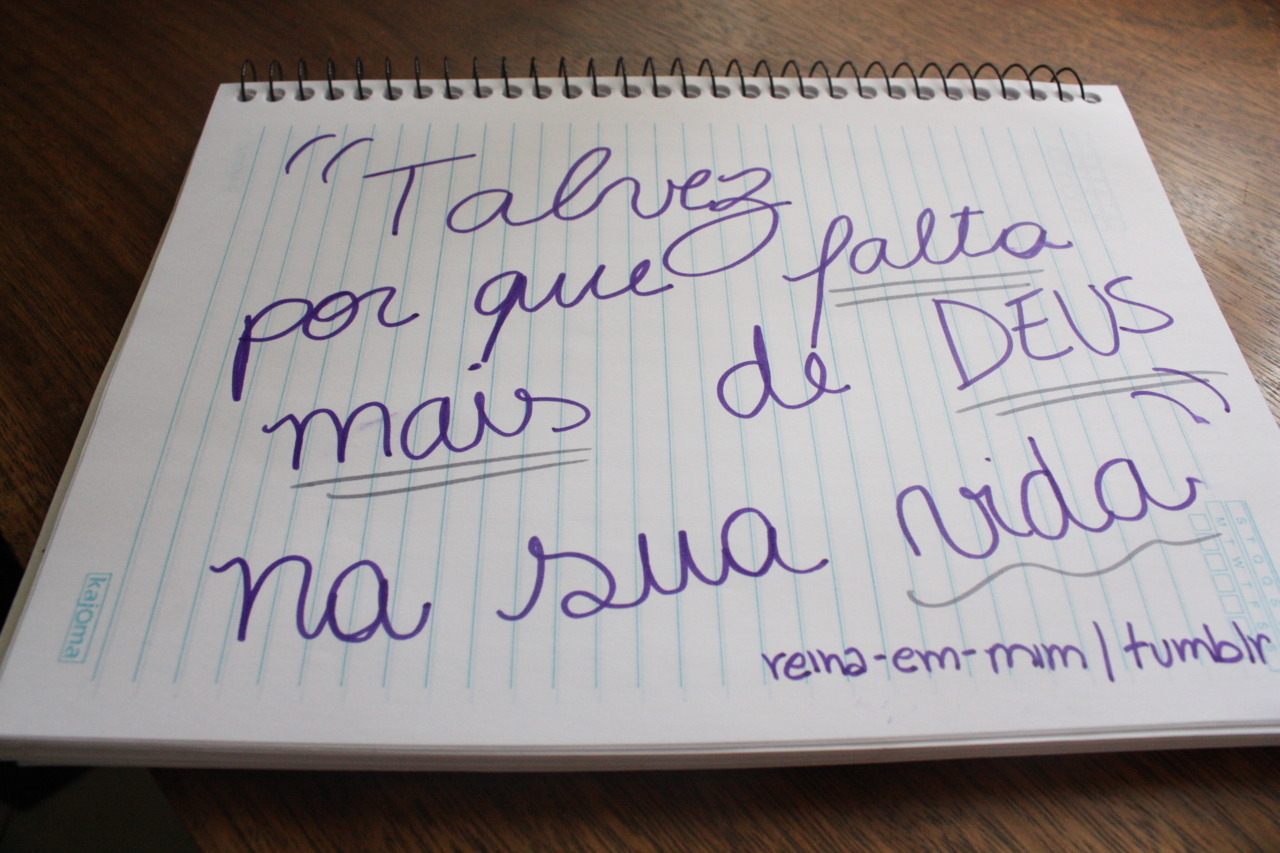 “Talvez
por que falta
mais de DEUS
na sua vida”
reina-em-mim / tumblr
kajoma